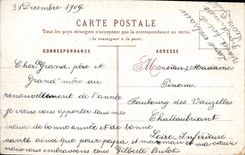 31 Decembre 1909.
CARTE POSTALE
Tous les pays étrangers n'acceptent pas la correspondance au recto.
(Se renseigner à la poste)
CORRESPONDANCE
ADRESSE
Cher Grand père et
Grand'mère au
renouvellement de l'année
je viens vous apporter tous mes
vœux de bonne année et de bonne
santé ainsi que pour papa et maman et ma sœur
nous vous embrassons tous Gilberte
Monsieur Madame
Pinon
Faubourg des Vauzelles
Chateaubriant
Loire Inférieure